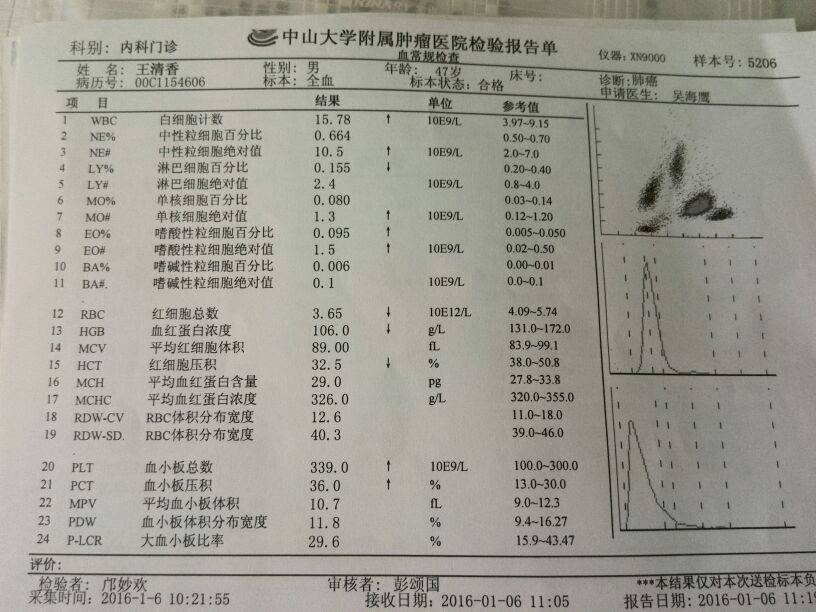 中山大学附属肿瘤医院检验报告单
科别: 内科门诊 血常规检查 仪器: XN9000 样本号: 5206
姓 名: 王清香 性别: 男 年龄: 47岁 床号: 诊断:肺癌
病历号: 00C1154606 标本: 全血 标本状态: 合格 申请医生: 吴海鹰
项 目 结果 单位 参考值
1 WBC 白细胞计数 15.78 ↑ 10E9/L 3.97~9.15
2 NE% 中性粒细胞百分比 0.664 0.50~0.70
3 NE# 中性粒细胞绝对值 10.5 ↑ 10E9/L 2.0~7.0
4 LY% 淋巴细胞百分比 0.155 ↓ 0.20~0.40
5 LY# 淋巴细胞绝对值 2.4 10E9/L 0.8~4.0
6 MO% 单核细胞百分比 0.080 0.03~0.14
7 MO# 单核细胞绝对值 1.3 ↑ 10E9/L 0.12~1.20
8 EO% 嗜酸性粒细胞百分比 0.095 ↑ 0.005~0.050
9 EO# 嗜酸性粒细胞绝对值 1.5 ↑ 10E9/L 0.02~0.50
10 BA% 嗜碱性粒细胞百分比 0.006 0.00~0.01
11 BA#. 嗜碱性粒细胞绝对值 0.1 10E9/L 0.0~0.1
12 RBC 红细胞总数 3.65 ↓ 10E12/L 4.09~5.74
13 HGB 血红蛋白浓度 106.0 ↓ g/L 131.0~172.0
14 MCV 平均红细胞体积 89.00 fL 83.9~99.1
15 HCT 红细胞压积 32.5 ↓ % 38.0~50.8
16 MCH 平均血红蛋白含量 29.0 pg 27.8~33.8
17 MCHC 平均血红蛋白浓度 326.0 g/L 320.0~355.0
18 RDW-CV RBC体积分布宽度 12.6 11.0~18.0
19 RDW-SD. RBC体积分布宽度 40.3 39.0~46.0
20 PLT 血小板总数 339.0 ↑ 10E9/L 100.0~300.0
21 PCT 血小板压积 36.0 ↑ % 13.0~30.0
22 MPV 平均血小板体积 10.7 fL 9.0~12.3
23 PDW 血小板体积分布宽度 11.8 % 9.4~16.27
24 P-LCR 大血小板比率 29.6 % 15.9~43.47
评价:
检验者: 邝妙欢 审核者: 彭颂国 ***本结果仅对本次送检标本负
采集时间: 2016-1-6 10:21:55 接收日期: 2016-01-06 11:05 报告日期: 2016-01-06 11:19